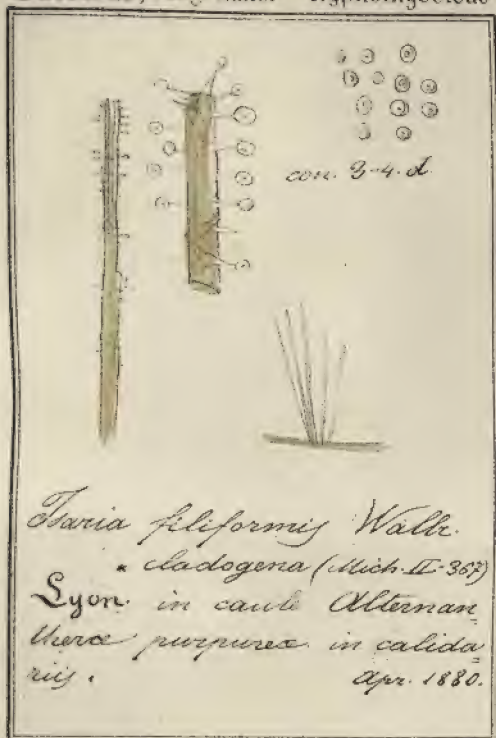 con. 3-4. d
Isaria filiformis Wallr.
" cladogena (Mich. II-367)
Lyon. in caule Alternan=
theræ purpureæ in calida
riis. Apr. 1880.